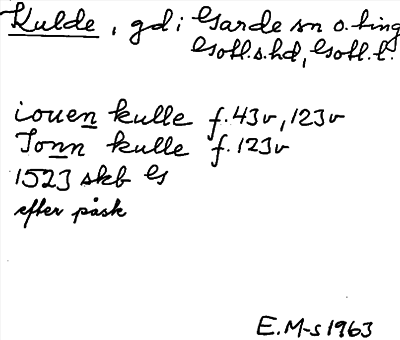 Kulde, gd i Garde sn o. ting
Gotl.s.hd, Gotl.l.
iouen kulle f. 43v, 123v
Jonn kulle f. 123v
1523 skb G
efter påsk
E. M-s 1963